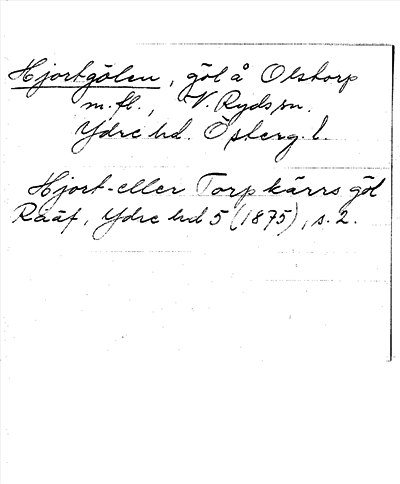 Hjortgölen, göl å Olstorp
m.fl., V. Ryds sn.
Ydre hd. Österg. l.
Hjort- eller Torpkärrs göl
Rääf, Ydre hd 5 (1875), s. 2.